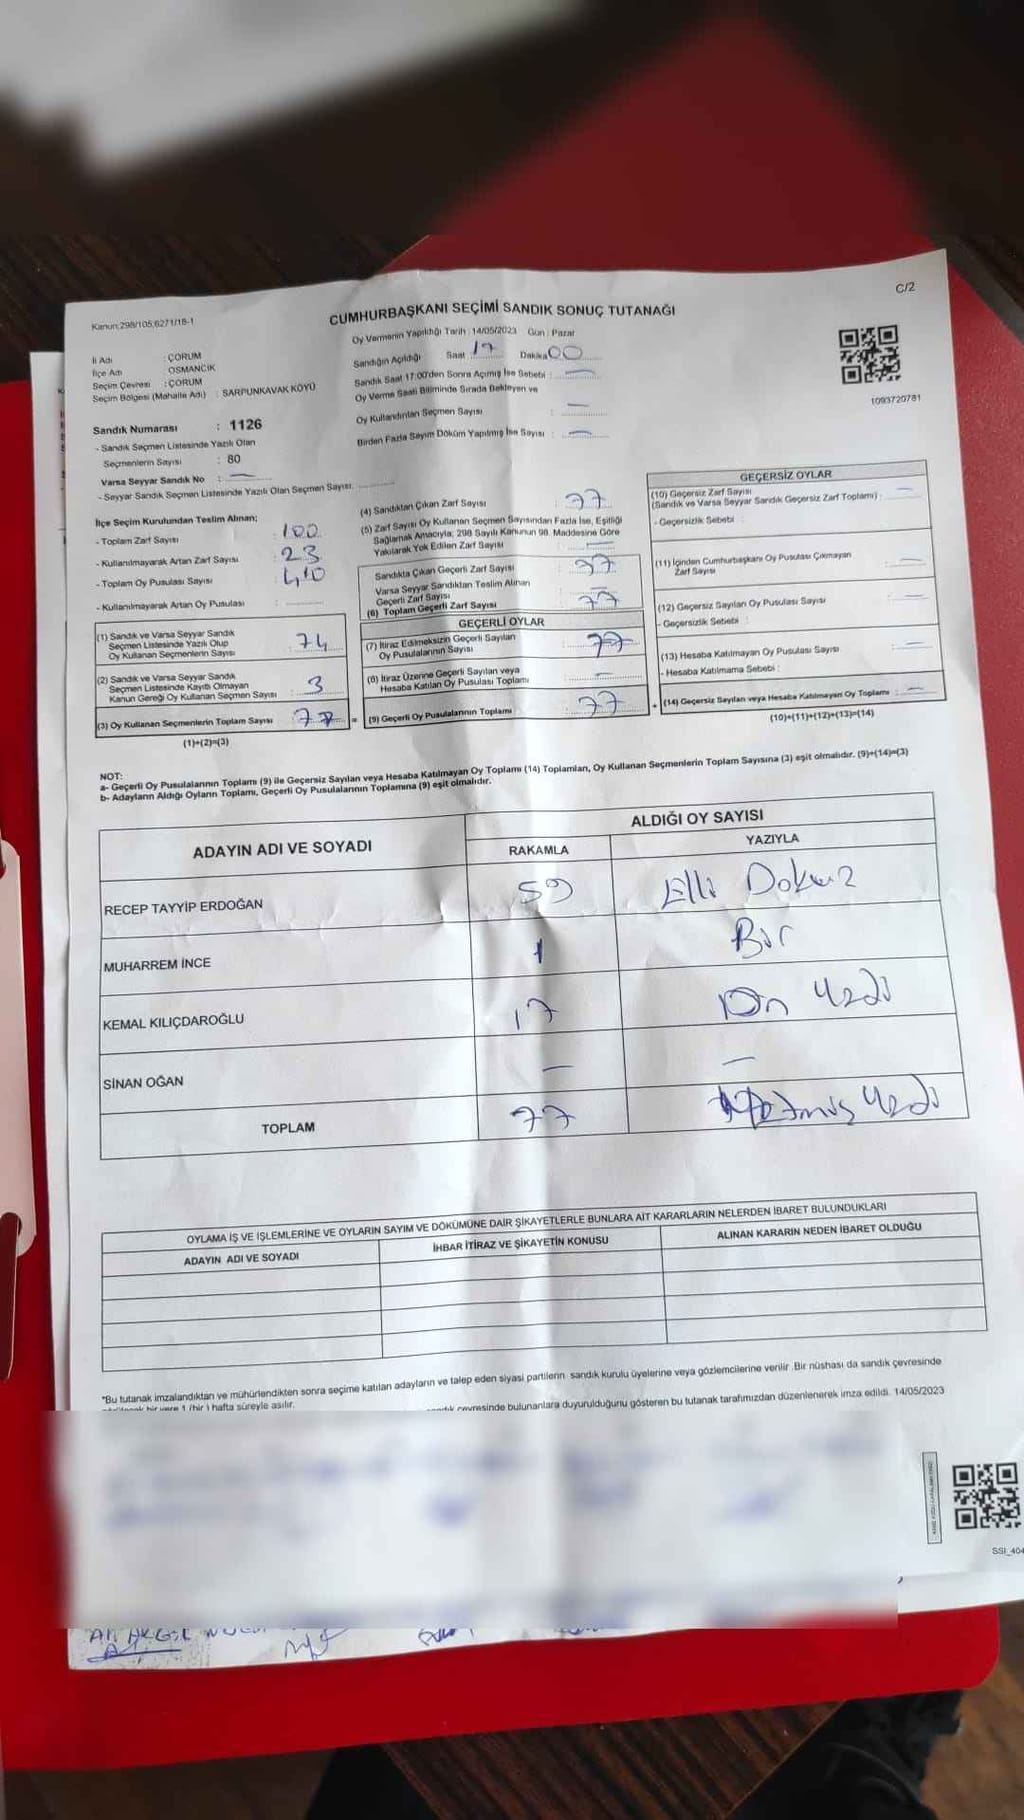 C/2
Kanun:298/105,6271/18-1
CUMHURBAŞKANI SEÇİMİ SANDIK SONUÇ TUTANAĞI
Oy Vermenin Yapıldığı Tarih : 14/05/2023 Gün : Pazar
İl Adı : ÇORUM
İlçe Adı : OSMANCIK
Seçim Çevresi : ÇORUM
Seçim Bölgesi (Mahalle Adı) : SARPUNKAVAK KÖYÜ
Sandığın Açıldığı Saat 17 Dakika 00
Sandık Saat 17:00'den Sonra Açılmış İse Sebebi : —
Oy Verme Saati Bitiminde Sırada Bekleyen ve
Oy Kullandırılan Seçmen Sayısı : —
Birden Fazla Sayım Döküm Yapılmış İse Sayısı : —
1093720781
Sandık Numarası : 1126
- Sandık Seçmen Listesinde Yazılı Olan
Seçmenlerin Sayısı : 80
Varsa Seyyar Sandık No : —
- Seyyar Sandık Seçmen Listesinde Yazılı Olan Seçmen Sayısı:
İlçe Seçim Kurulundan Teslim Alınan;
- Toplam Zarf Sayısı : 100
- Kullanılmayarak Artan Zarf Sayısı : 23
- Toplam Oy Pusulası Sayısı : 410
- Kullanılmayarak Artan Oy Pusulası :
(1) Sandık ve Varsa Seyyar Sandık
Seçmen Listesinde Yazılı Olup
Oy Kullanan Seçmenlerin Sayısı : 74
(2) Sandık ve Varsa Seyyar Sandık
Seçmen Listesinde Kayıtlı Olmayan
Kanun Gereği Oy Kullanan Seçmen Sayısı : 3
(3) Oy Kullanan Seçmenlerin Toplam Sayısı : 77 =
(1)+(2)=(3)
(4) Sandıktan Çıkan Zarf Sayısı : 77
(5) Zarf Sayısı Oy Kullanan Seçmen Sayısından Fazla İse, Eşitliği
Sağlamak Amacıyla; 298 Sayılı Kanunun 98. Maddesine Göre
Yakılarak Yok Edilen Zarf Sayısı : —
Sandıkta Çıkan Geçerli Zarf Sayısı : 77
Varsa Seyyar Sandıktan Teslim Alınan
Geçerli Zarf Sayısı : —
(6) Toplam Geçerli Zarf Sayısı : 77
GEÇERLİ OYLAR
(7) İtiraz Edilmeksizin Geçerli Sayılan
Oy Pusulalarının Sayısı : 77
(8) İtiraz Üzerine Geçerli Sayılan veya
Hesaba Katılan Oy Pusulası Toplamı : —
(9) Geçerli Oy Pusulalarının Toplamı : 77 +
GEÇERSİZ OYLAR
(10) Geçersiz Zarf Sayısı
(Sandık ve Varsa Seyyar Sandık Geçersiz Zarf Toplamı) : —
- Geçersizlik Sebebi :
(11) İçinden Cumhurbaşkanı Oy Pusulası Çıkmayan
Zarf Sayısı : —
(12) Geçersiz Sayılan Oy Pusulası Sayısı : —
- Geçersizlik Sebebi :
(13) Hesaba Katılmayan Oy Pusulası Sayısı : —
- Hesaba Katılmama Sebebi :
(14) Geçersiz Sayılan veya Hesaba Katılmayan Oy Toplamı : —
(10)+(11)+(12)+(13)=(14)
NOT:
a- Geçerli Oy Pusulalarının Toplamı (9) ile Geçersiz Sayılan veya Hesaba Katılmayan Oy Toplamı (14) Toplamları, Oy Kullanan Seçmenlerin Toplam Sayısına (3) eşit olmalıdır. (9)+(14)=(3)
b- Adayların Aldığı Oyların Toplamı, Geçerli Oy Pusulalarının Toplamına (9) eşit olmalıdır.
ADAYIN ADI VE SOYADI
ALDIĞI OY SAYISI
RAKAMLA YAZIYLA
RECEP TAYYİP ERDOĞAN 59 Elli Dokuz
MUHARREM İNCE 1 Bir
KEMAL KILIÇDAROĞLU 17 On Yedi
SİNAN OĞAN — —
TOPLAM 77 Yetmiş Yedi
OYLAMA İŞ VE İŞLEMLERİNE VE OYLARIN SAYIM VE DÖKÜMÜNE DAİR ŞİKAYETLERLE BUNLARA AİT KARARLARIN NELERDEN İBARET BULUNDUKLARI
ADAYIN ADI VE SOYADI İHBAR İTİRAZ VE ŞİKAYETİN KONUSU ALINAN KARARIN NEDEN İBARET OLDUĞU
*Bu tutanak imzalandıktan ve mühürlendikten sonra seçime katılan adayların ve talep eden siyasi partilerin sandık kurulu üyelerine veya gözlemcilerine verilir. Bir nüshası da sandık çevresinde
bir yere 1 (bir) hafta süreyle asılır.
çevresinde bulunanlara duyurulduğunu gösteren bu tutanak tarafımızdan düzenlenerek imza edildi. 14/05/2023
SSI_404